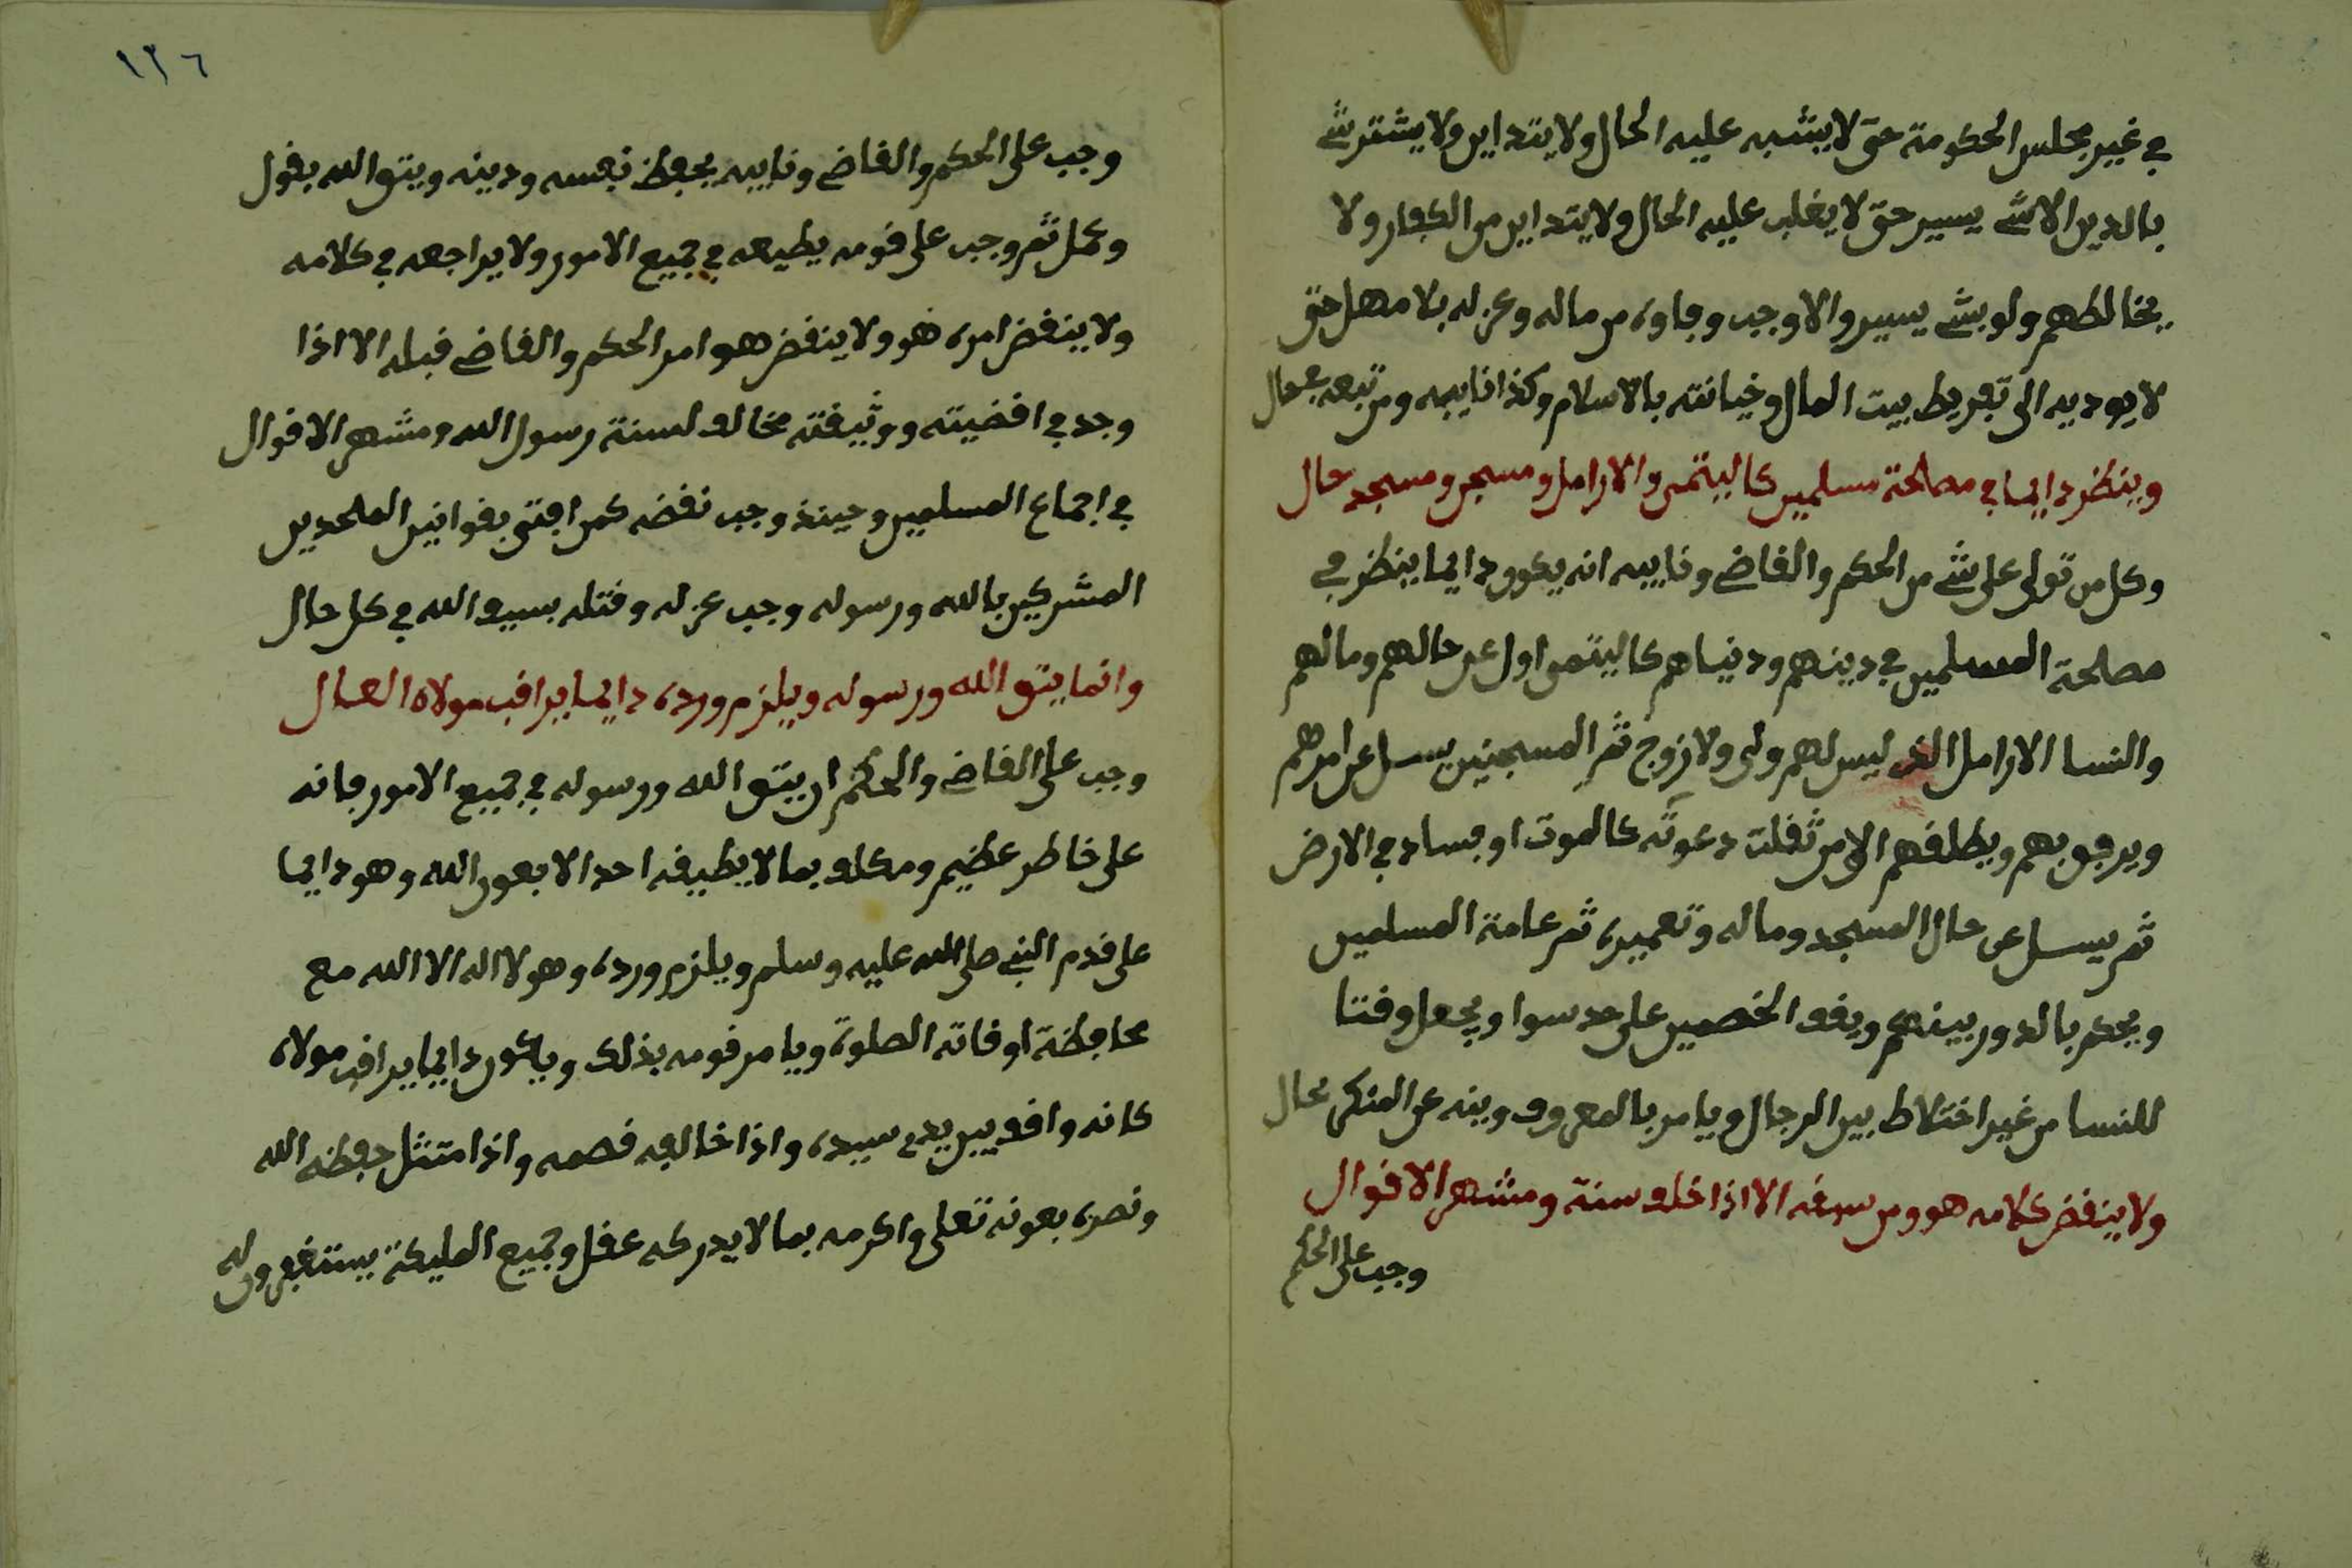 في غير مجلس الحكومة حتى لا يشبه عليه الحال ولا يتداين ولا يشتر شي
بالدين الا شي يسير حتى لا يغلب عليه الحال ولا يتداين من الكفار ولا
يخالطهم ولو بشي يسير والا وجب وفاوه من ماله وعزله بلا مهل حتى
لا يوديه الى تفريط بيت المال وخيانته بالاسلام وكذا نايبه ومن تبعه بحال
وينظر دايما في مصلحة مسلمين كاليتمى والارامل ومسجن ومسجد حال
وكل من تولى على شي من الحكم والقاضي ونايبه انه يكون دايما ينظر في
مصلحة المسلمين في دينهم ودنياهم كاليتمى اول عن حالهم ومالهم
والنسا الارامل الذى ليس لهم ولى ولا زوج ثم المسجنين يسل عن امرهم
ويرفق بهم ويطلقهم الا من ثقلت دعوته كالموت او فساد في الارض
ثم يسل عن حال المسجد وماله وتعميره ثم عامة المسلمين
ويحكم بالدور بينهم ويقف الخصمين على حد سوا ويجعل وقتا
للنسا من غير اختلاط بين الرجال ويامر بالمعروف وينه عن المنكر بحال
ولا ينقض كلامه هو ومن سبقه الا اذا خلف سنة ومشهر الاقوال
وجب على الحكم
١٢٦
وجب على الحكم والقاضي ونايبه يحفظ نفسه ودينه ويتق الله بقول
وعمل ثم وجب على قومه يطيعه في جميع الامور ولا يراجعه في كلامه
ولا ينقض امره هو ولا ينقض هو امر الحكم والقاضي قبله الا اذا
وجد في اقضيته ووثيقته مخالف لسنة رسول الله ومشهر الاقوال
في اجماع المسلمين وحينذ وجب نقضه كمن افتى بقوانين الملحدين
المشركين بالله ورسوله وجب عزله وقتله بسيف الله في كل حال
وانما يتق الله ورسوله ويلزم ورده دايما يراقب مولاه العال
وجب على القاضي والحكم ان يتق الله ورسوله في جميع الامور فانه
على خاطر عظيم ومكلف بما لا يطيقه احد الا بعون الله وهو دايما
على قدم النبي صلى الله عليه وسلم ويلزم ورده وهو لا اله الا الله مع
محافظة اوقاته الصلوة ويامر قومه بذلك ويكون دايما يراقب مولاه
كانه واقف بين يدي سيده واذا خالفه قصمه واذا متثل حفظه الله
ونصره بعونه تعلى واكرمه بما لا يدركه عقل وجميع المليكة يستغفرون له